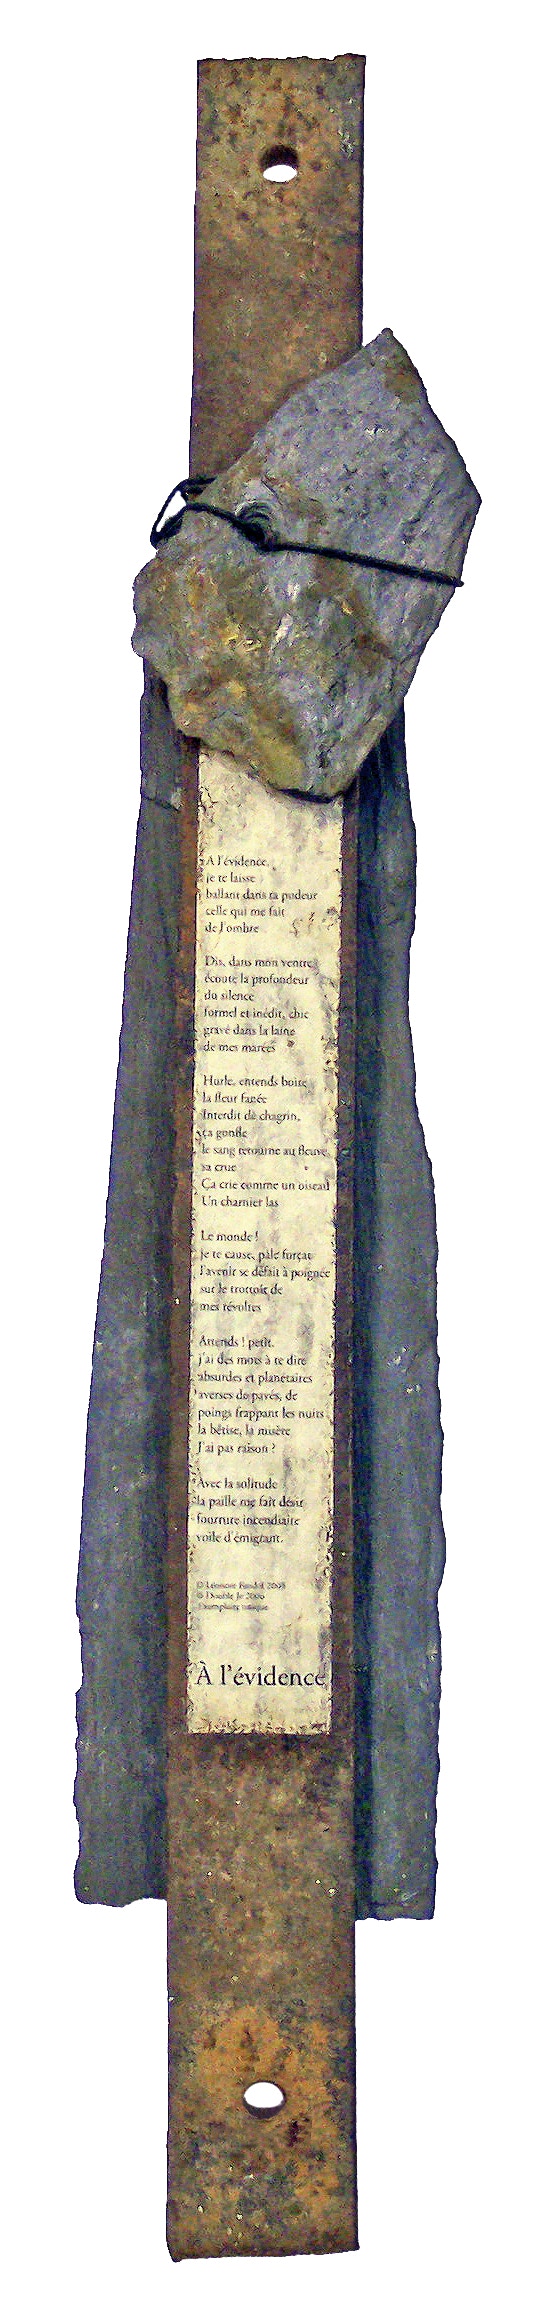 À l'évidence,
je te laisse
ballant dans ta pudeur
celle qui me fait
de l'ombre
Dis, dans mon ventre
écoute la profondeur
du silence
formel et inédit, chic
gravé dans la laine
de mes marées
Hurle, entends boire
la fleur fanée
Interdit de chagrin,
ça gonfle
le sang retourne au fleuve
sa crue
Ça crie comme un oiseau
Un charnier las
Le monde !
je te cause, pâle forçat
l'avenir se défait à poignée
sur le trottoir de
mes révoltes
Attends ! petit.
j'ai des mots à te dire
absurdes et planétaires
averses de pavés, de
poings frappant les nuits
la bêtise, la misère
J'ai pas raison ?
Avec la solitude
la paille me fait désir
fourrure incendiaire
voile d'émigrant.
©
© Double Je 2006
Exemplaire unique
À l'évidence